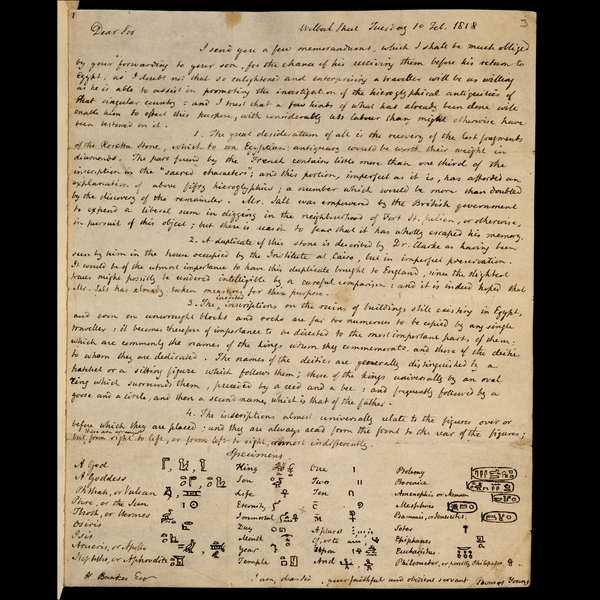 3
Dear Sir Welbeck Street Tuesday 10 Feb. 1818
I send you a few memorandums, which I shall be much obliged
by your forwarding to your son, for the chance of his receiving them before his return to
Egypt, as I doubt not that so enlightened and enterprising a traveller will be as willing
as he is able to assist in promoting the investigation of the hieroglyphical antiquities of
that singular country: and I trust that a few hints of what has already been done will
enable him to effect this purpose, with considerably less labour than might otherwise have
been bestowed on it.
1. The great desideratum of all is the recovery of the lost fragments
of the Rosetta Stone, which to an Egyptian antiquary would be worth their weight in
diamonds. The part found by the French contains little more than one third of the
inscription in the "sacred characters; and this portion, imperfect as it is, has afforded an
explanation of above fifty hieroglyphics; a number which would be more than doubled
by the discovery of the remainder. Mr. Salt was empowered by the British government
to expend a liberal sum in digging in the neighbourhood of Fort St. Julien, or otherwise,
in pursuit of this object; but there is reason to fear that it has wholly escaped his memory.
2. A duplicate of this stone is described by Dr. Clarke as having been
seen by him in the house occupied by the Institute at Cairo, but in imperfect preservation.
It would be of the utmost importance to have this duplicate brought to England, since the slightest
traces might possibly be rendered intelligible by a careful comparison: and it is indeed hoped that
Mr. Salt has already taken measures for this purpose.
3. The inscriptions on the ruins of buildings still existing in Egypt,
and even on unwrought blocks and rocks are far too numerous to be copied by any single
traveller: it becomes therefore of importance to be directed to the most important parts, of them.
which are commonly the names of the kings whom they commemorate and those of the deities
to whom they are dedicated. The names of the deities are generally distinguished by a
hatchet or a sitting figure which follows them; those of the kings universally by an oval
ring which surrounds them, preceded by a reed and a bee: and frequently followed by a
goose and a circle, and then a second name, which is that of the father.
4. The inscriptions almost universally relate to the figures over or
before which they are placed: and they are always read from the front to the rear of the figures;
but from right to left, or from left to right, almost indifferently.
Specimens
A God King One Ptolemy
A Goddess Son Two Berenice
Phthah, or Vulcan Life Ten Amenophis or Memnon
Phre, or the Sun Eternity Mesphres
Thoth, or Hermes Immortal
Osiris Day A plural Soter
Isis Month Of, or to Epiphanes
Arueris, or Apollo Year Upon Eucharistus
Nephthe, or Aphrodite Temple And Philometor, or possibly Philopator
W Bankes Esqr I am, dear Sir, your faithful and obedient servant Thomas Young